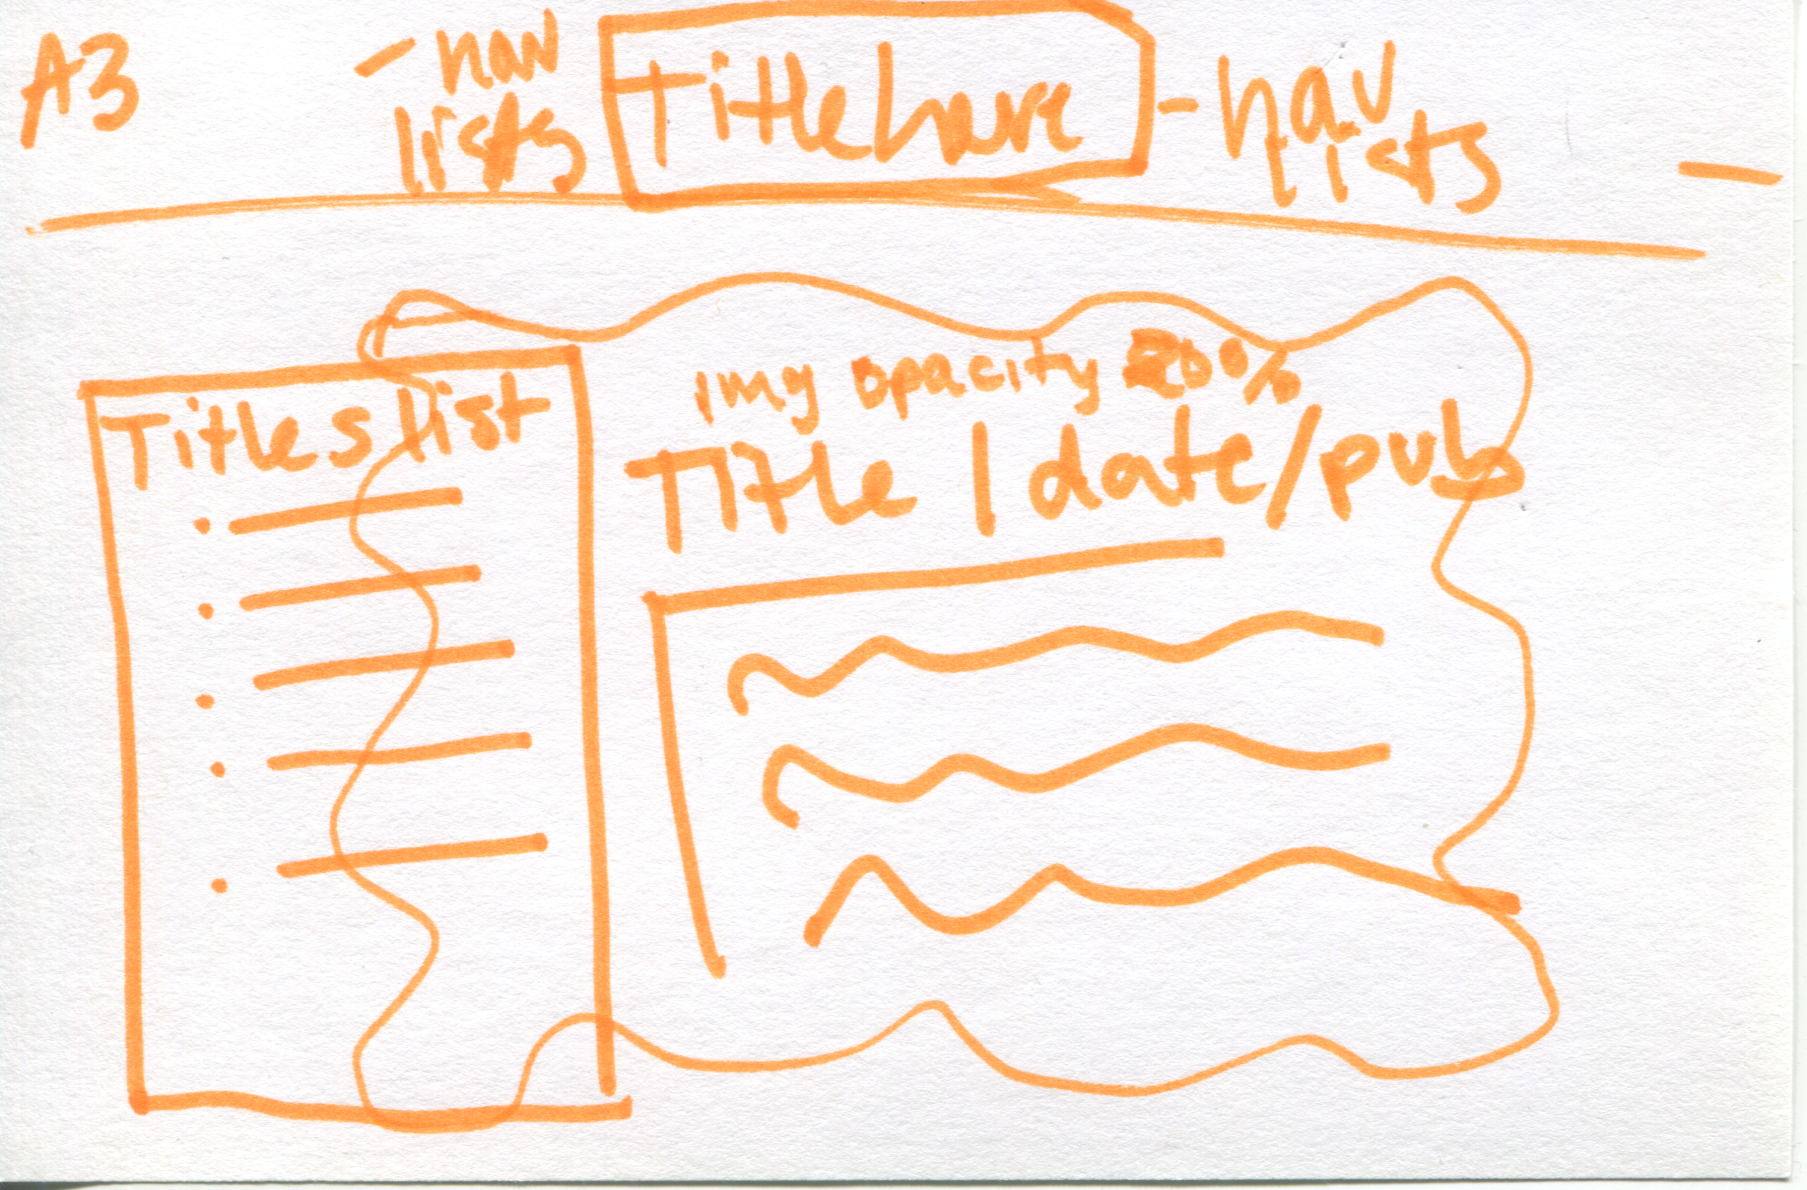 A3
- nav
lists
Title here
- nav
lists
Titles list
img opacity 20%
Title | date/pub